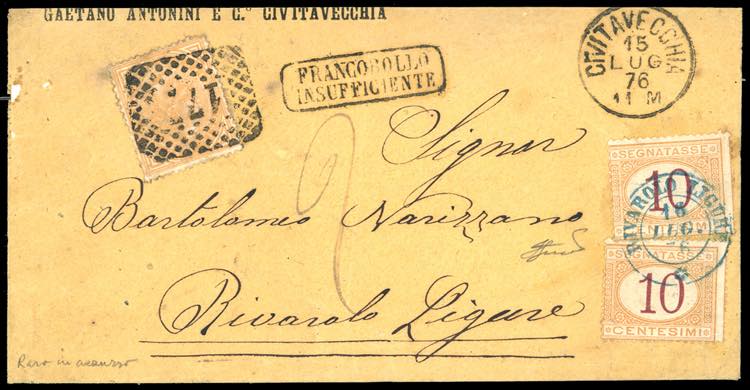 GAETANO ANTONINI E C.º CIVITAVECCHIA
FRANCOBOLLO
INSUFFICIENTE
CIVITAVECCHIA
15
LUG
76
11 M
Signor
Bartolomeo Narizzano
Rivarolo Ligure
2
SEGNATASSE
10
CENTESIMI
RIVAROLO LIGURE
18
LUG
76
SEGNATASSE
10
CENTESIMI
Raro in